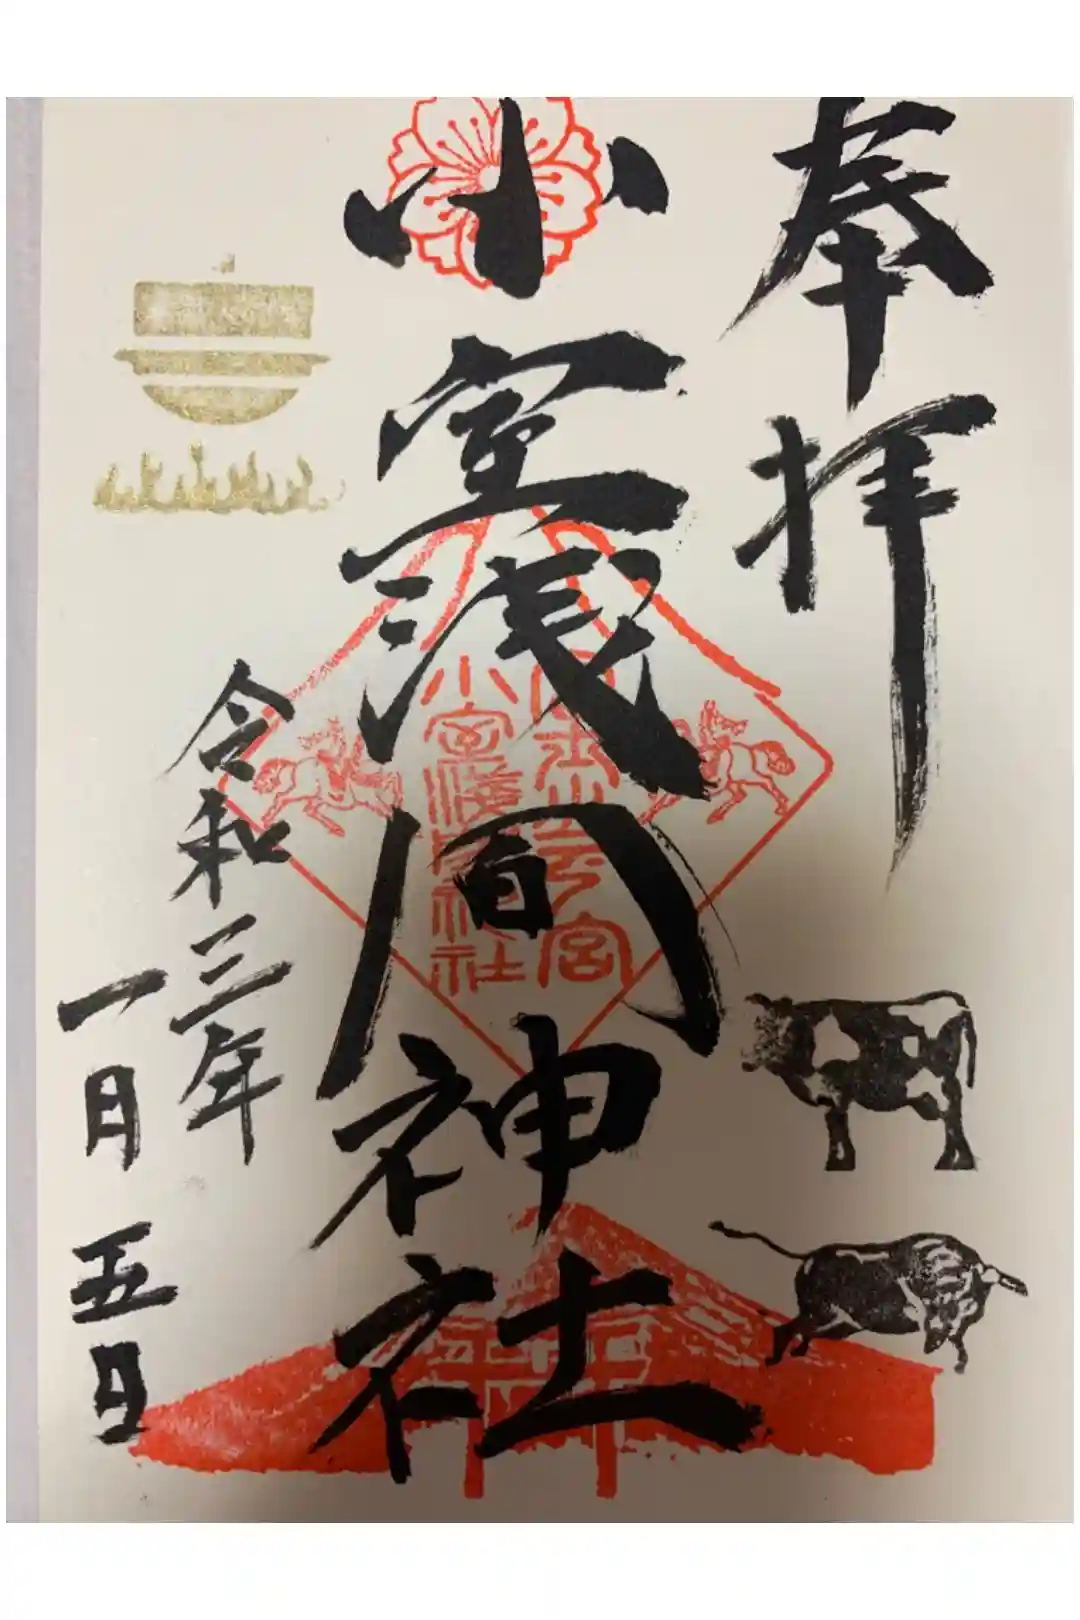 奉拝
小室浅间神社
令和三年
一月五日
小室浅間神社